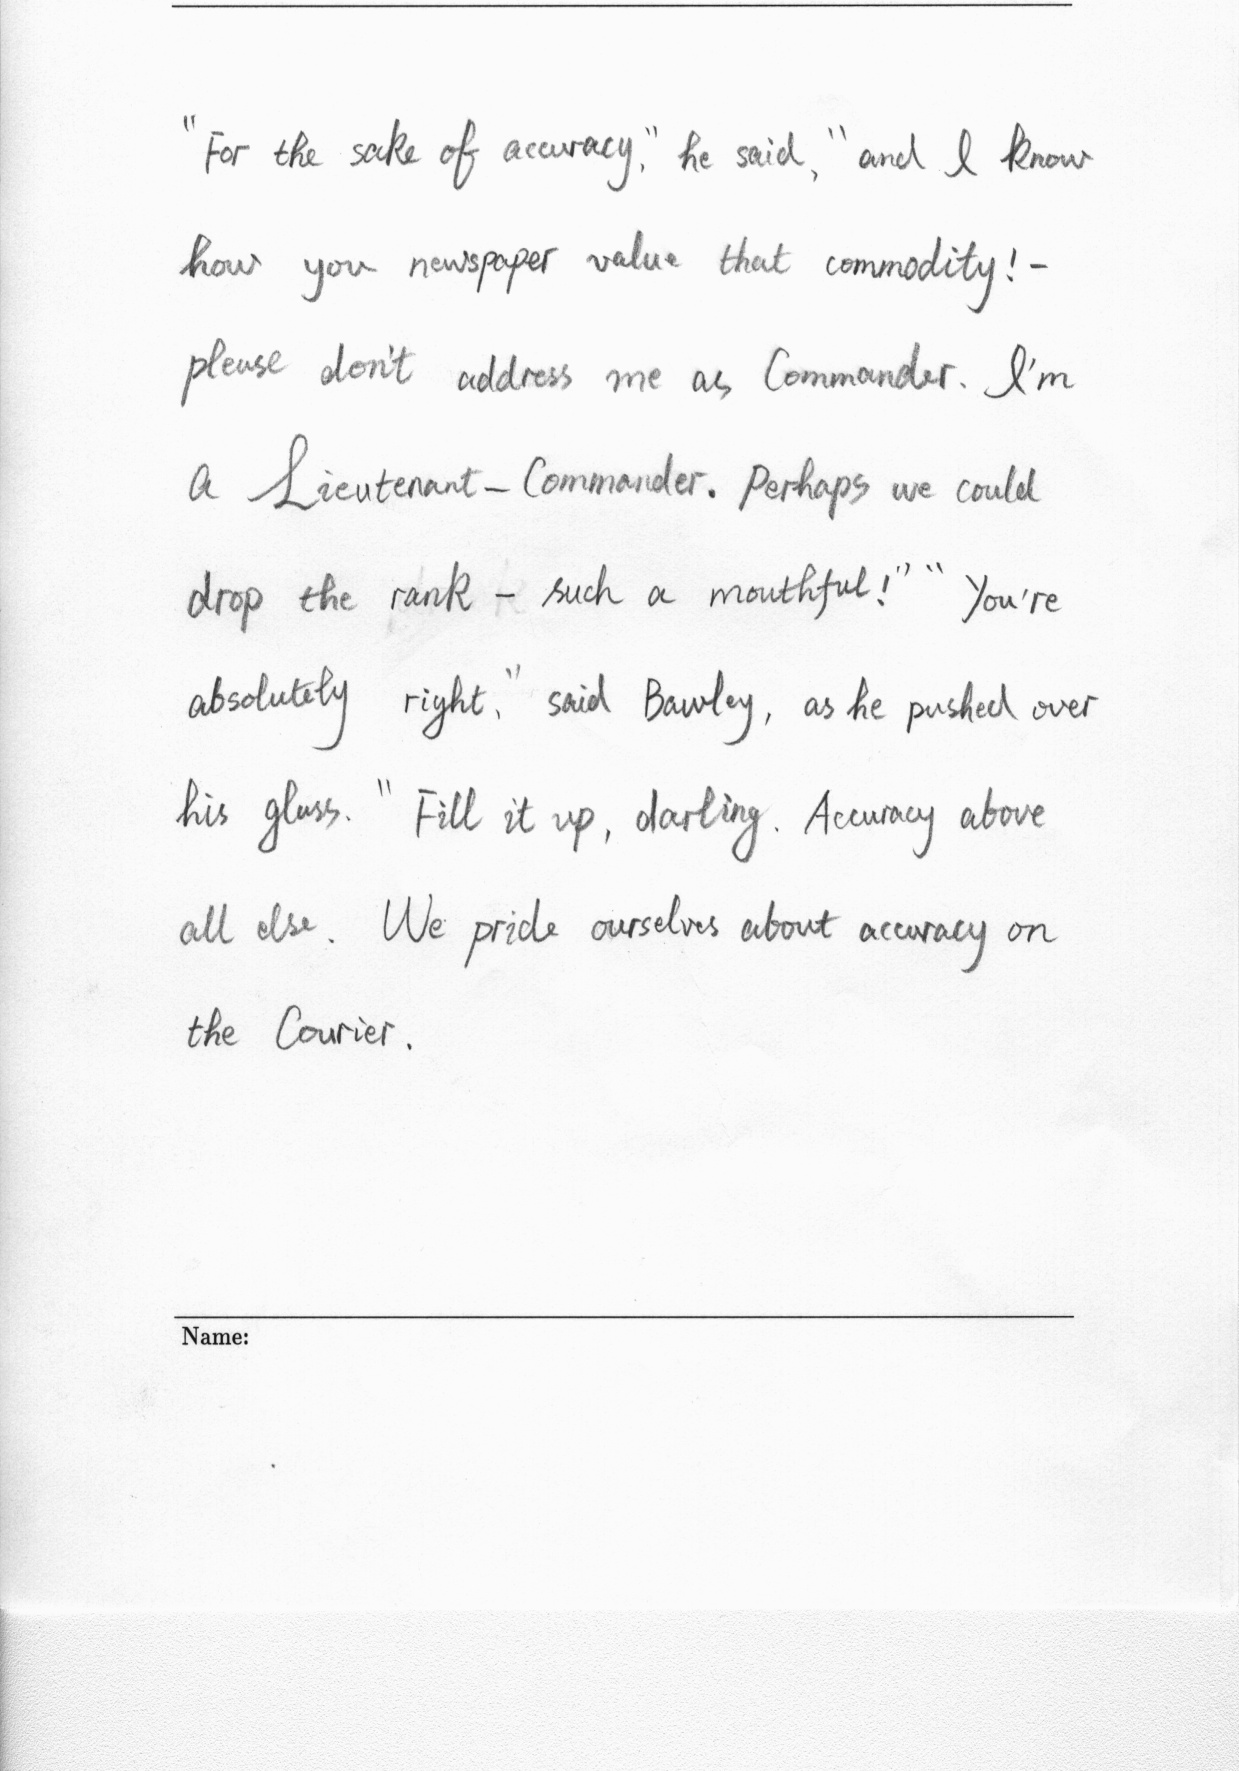 "For the sake of accuracy," he said, "and I know
how you newspaper value that commodity! -
please don't address me as Commander. I'm
a Lieutenant - Commander. Perhaps we could
drop the rank - such a mouthful!" "You're
absolutely right," said Bawley, as he pushed over
his glass. "Fill it up, darling. Accuracy above
all else. We pride ourselves about accuracy on
the Courier.
Name: